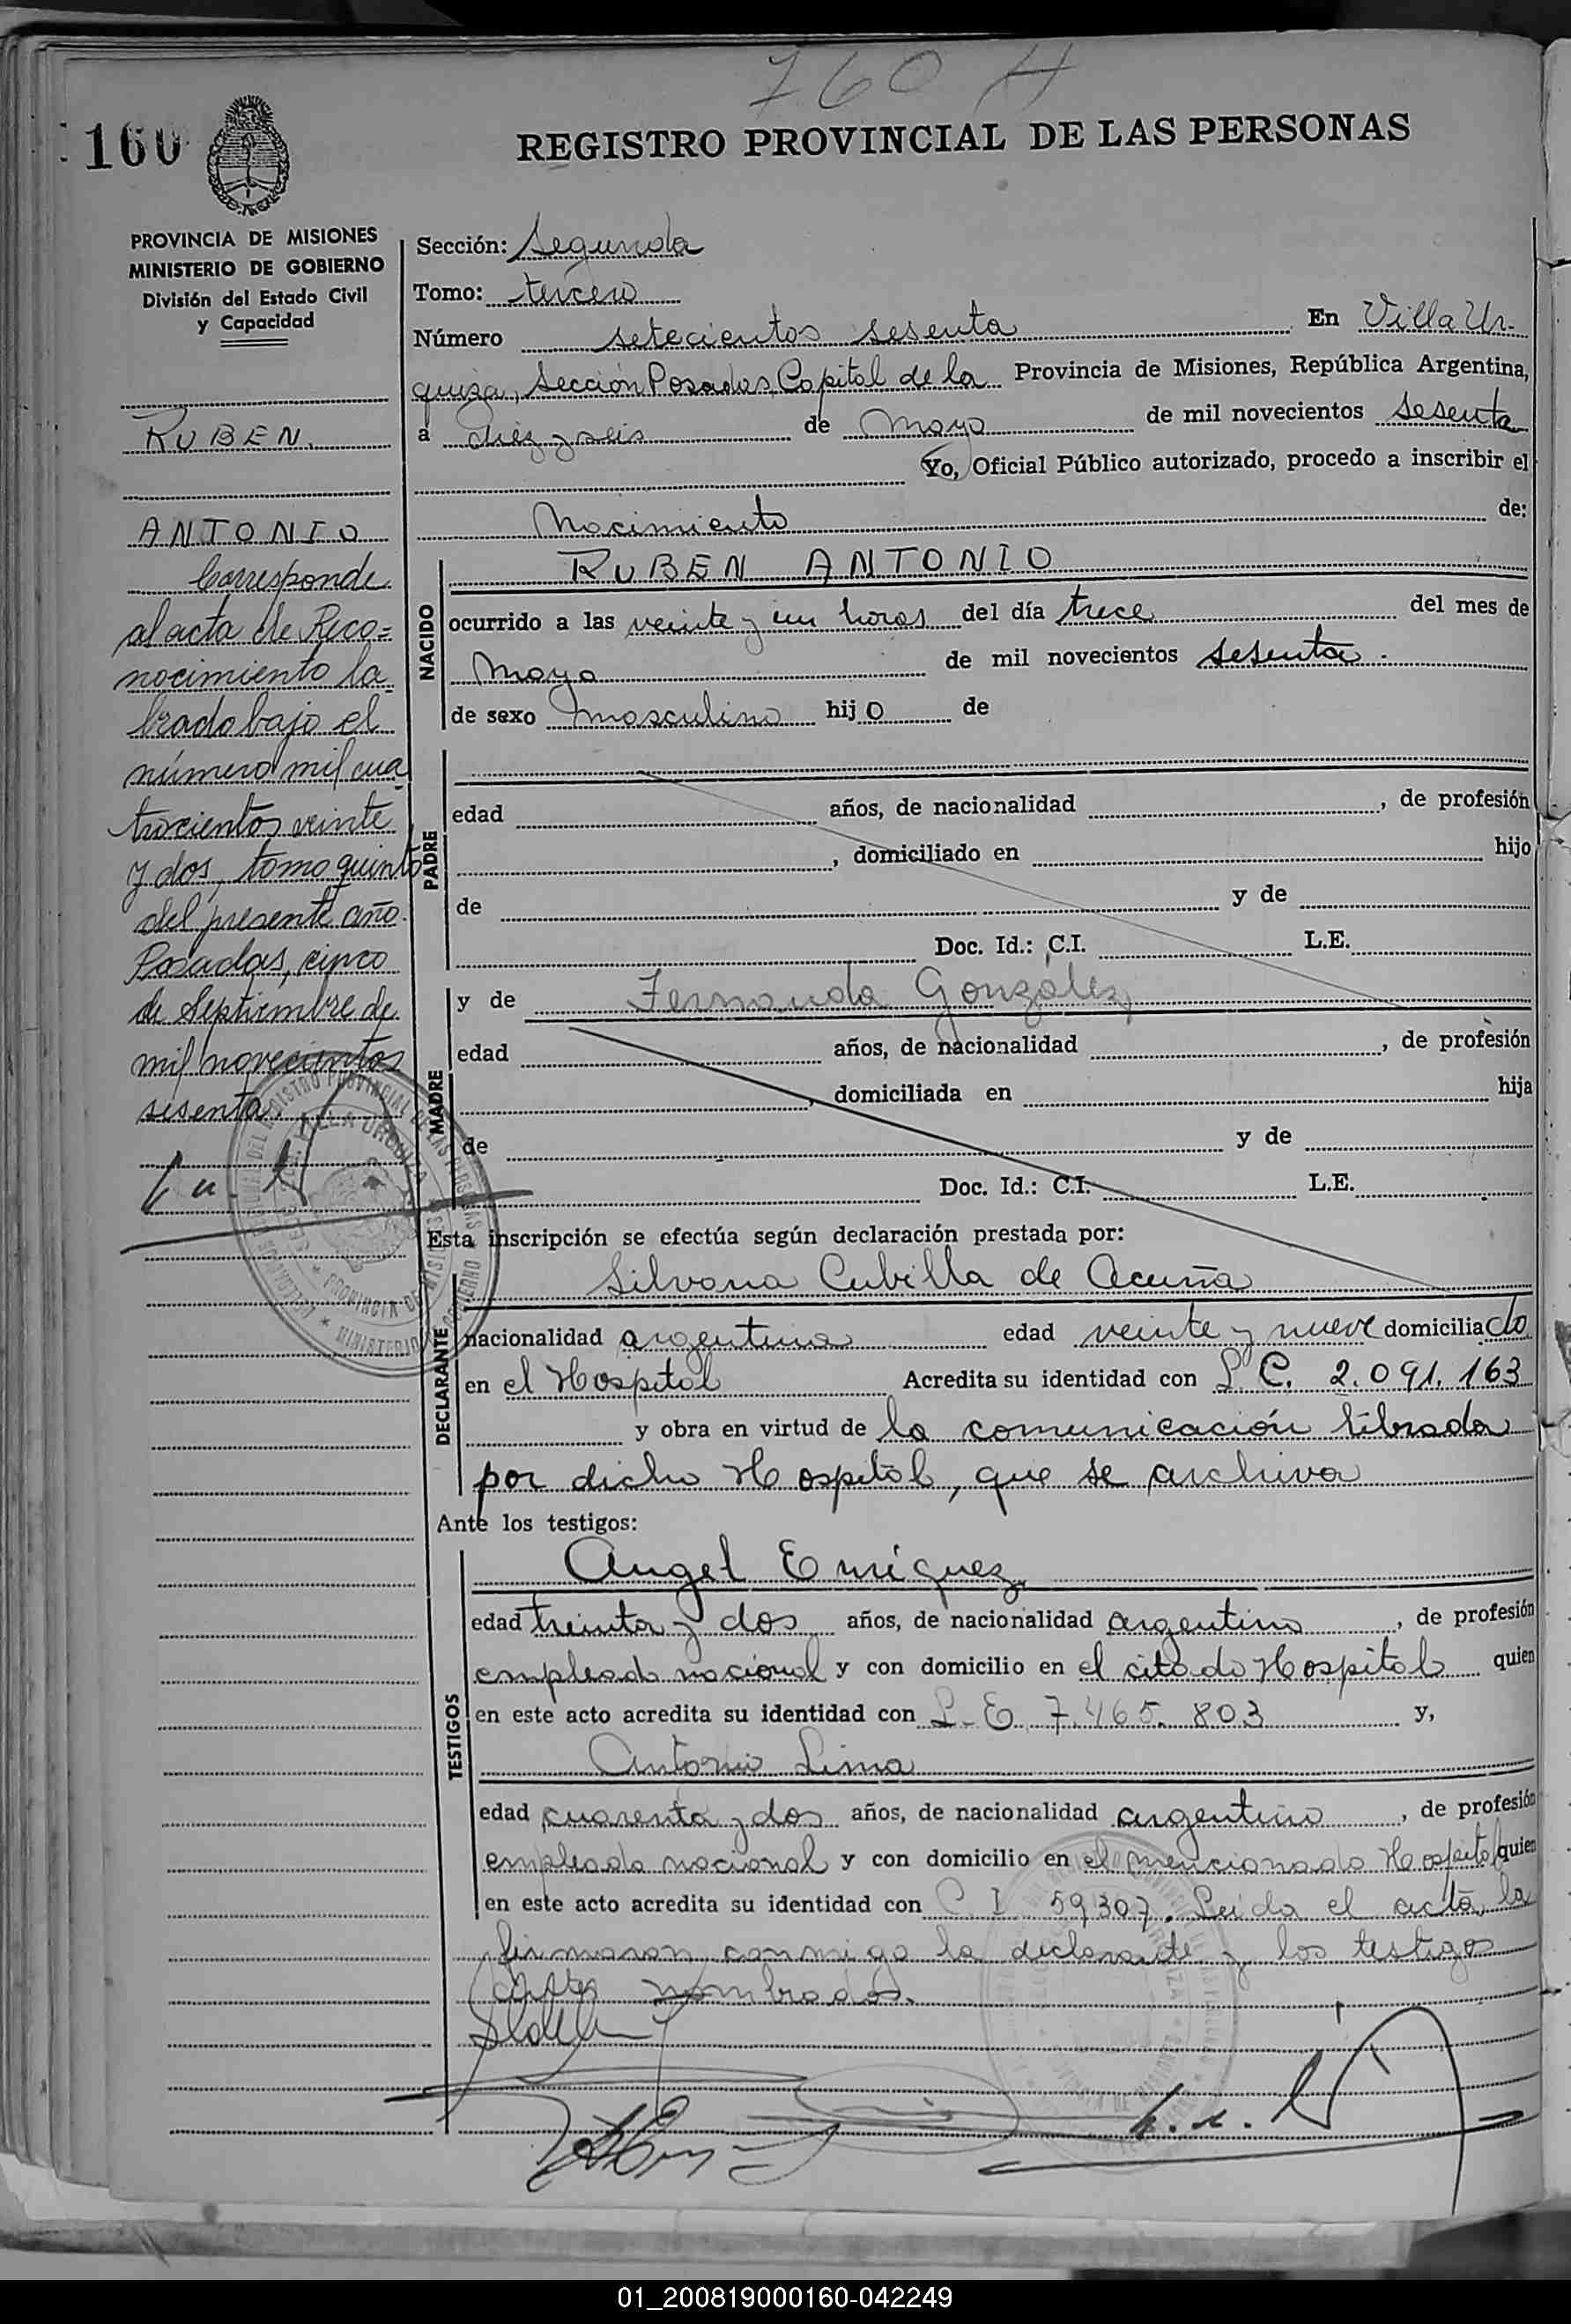 760 H
160
REGISTRO PROVINCIAL DE LAS PERSONAS
PROVINCIA DE MISIONES
MINISTERIO DE GOBIERNO
División del Estado Civil
y Capacidad
RUBEN.
ANTONIO
Corresponde
al acta de Reco=
nocimiento la
brado bajo el
número mil cua
trocientos veinte
y dos, tomo quinto
del presente año.
Posadas, cinco
de Septiembre de
mil novecientos
sesenta.
Sección: Segunda
Tomo: tercero
Número setecientos sesenta En Villa Ur-
quiza, Sección Posadas, Capital de la Provincia de Misiones, República Argentina,
a diez y seis de mayo de mil novecientos sesenta
Yo, Oficial Público autorizado, procedo a inscribir el
Nacimiento de:
NACIDO
RUBEN ANTONIO
ocurrido a las veinte y un horas del día trece del mes de
mayo de mil novecientos sesenta.
de sexo masculino hijo de
PADRE
edad años, de nacionalidad , de profesión
, domiciliado en hijo
de y de
Doc. Id.: C.I. L.E.
MADRE
y de Fernanda González
edad años, de nacionalidad , de profesión
, domiciliada en hija
de y de
Doc. Id.: C.I. L.E.
Esta inscripción se efectúa según declaración prestada por:
DECLARANTE
Silvana Cubilla de Acuña
nacionalidad argentina edad veinte y nueve domiciliado
en el Hospital Acredita su identidad con L. C. 2.091.163
y obra en virtud de la comunicación librada
por dicho Hospital, que se archiva
Ante los testigos:
TESTIGOS
Angel Enriquez
edad treinta y dos años, de nacionalidad argentino , de profesión
empleado nacional y con domicilio en el citado Hospital quien
en este acto acredita su identidad con L. E. 7.465.803 y,
Antonio Lima
edad cuarenta y dos años, de nacionalidad argentino , de profesión
empleado nacional y con domicilio en el mencionado Hospital quien
en este acto acredita su identidad con C. I. 59307. Leída el acta, la
firmaron conmigo la declarante y los testigos
antes nombrados.
01_200819000160-042249